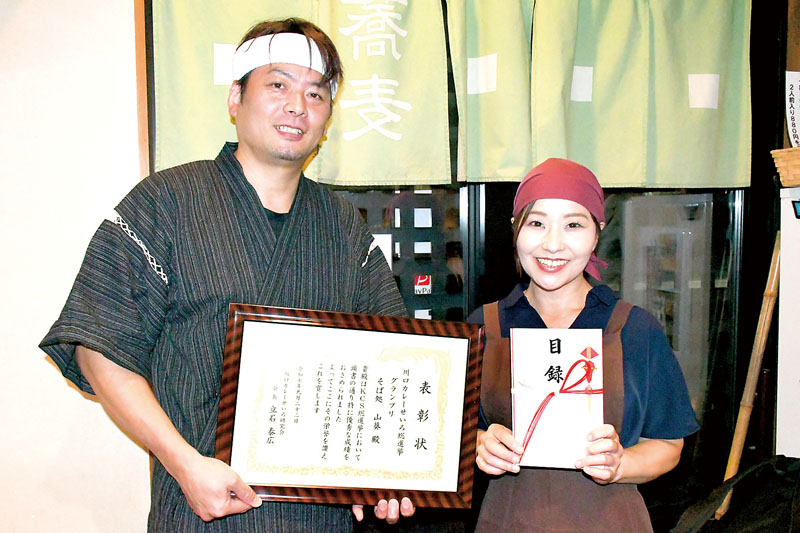 蕎麦
2人前入り880円
PayPa
表彰状
川口カレーせいろ総選挙
グランプリ
そば処 山葵 殿
貴殿はKCS総選挙において
頭書の通り特に優秀な成績を
おさめられました
よってここにその栄誉を讃え
これを賞します
令和七年九月二十二日
川口カレーせいろ研究会
会長 立石 泰広
目録